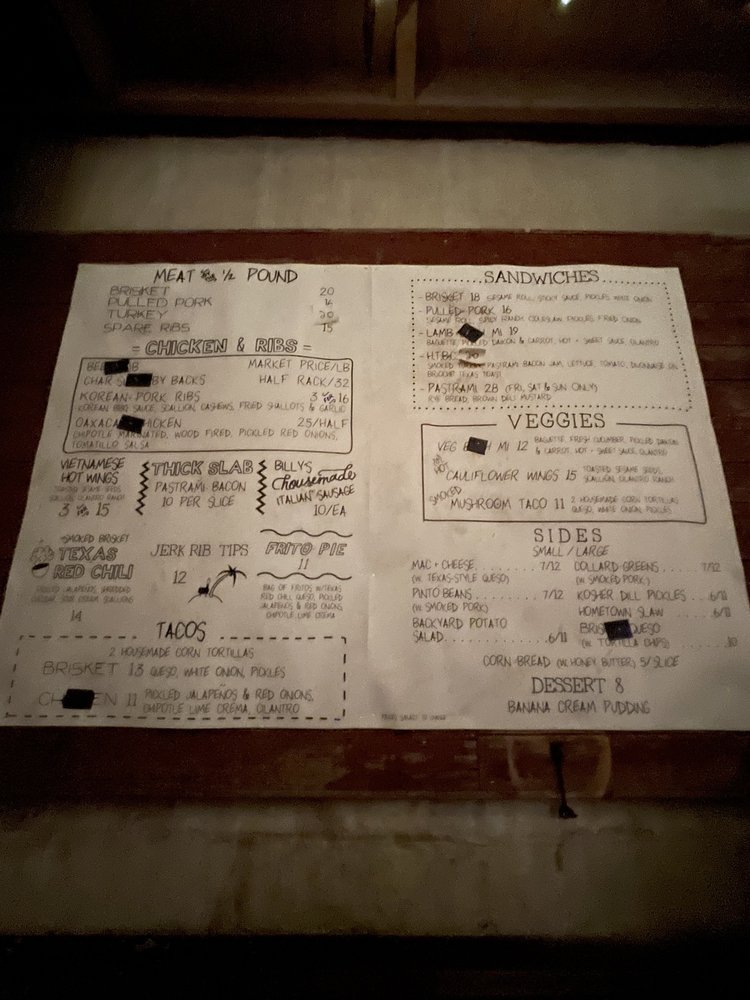 MEAT By 1/2 POUND
BRISKET 20
PULLED PORK 14
TURKEY 20
SPARE RIBS 15
CHICKEN & RIBS
MARKET PRICE/LB
CHAR BY BACKS HALF RACK/32
KOREAN PORK RIBS 3 16
KOREAN BBQ SAUCE, SCALLION, CASHEWS, FRIED SHALLOTS & GARLIC
OAXACA HICKEN 25/HALF
CHIPOTLE MARINATED, WOOD FIRED, PICKLED RED ONIONS,
TOMATILLO SALSA
VIETNAMESE
HOT WINGS
TOASTED SESAME SEEDS
SCALLION, CILANTRO RANCH
3 15
THICK SLAB
PASTRAMI BACON
10 PER SLICE
BILLYS
housemade
ITALIAN SAUSAGE
10/EA
SMOKED BRISKET
TEXAS
RED CHILI
PICKLED JALAPEÑOS, SHREDDED
CHEDDAR, SOUR CREAM, SCALLIONS
14
JERK RIB TIPS
12
FRITO PIE
11
BAG OF FRITOS W/TEXAS
RED CHILI, QUESO, PICKLED
JALAPEÑOS & RED ONIONS,
CHIPOTLE LIME CREMA
TACOS
2 HOUSEMADE CORN TORTILLAS
BRISKET 13 QUESO, WHITE ONION, PICKLES
CH EN 11 PICKLED JALAPEÑOS & RED ONIONS,
CHIPOTLE LIME CREMA, CILANTRO
SANDWICHES
- BRISKET 18 SESAME ROLL, STICKY SAUCE, PICKLES, WHITE ONION
- PULLED PORK 16
SESAME ROLL, SPICY RANCH, COLESLAW, PICKLES, FRIED ONION
- LAMB MI 19
BAGUETTE, PICKLED DAIKON & CARROT, HOT + SWEET SAUCE, CILANTRO
- H.T.B.
SMOKED PASTRAMI BACON JAM, LETTUCE, TOMATO, DIJONNAISE ON
TEXAS TOAST
- PASTRAMI 28 (FRI, SAT & SUN ONLY)
RYE BREAD, BROWN DELI MUSTARD
VEGGIES
VEG MI 12 BAGUETTE, FRESH CUCUMBER, PICKLED DAIKON
& CARROT, HOT + SWEET SAUCE, CILANTRO
CAULIFLOWER WINGS 15 TOASTED SESAME SEEDS,
SCALLION, CILANTRO RANCH
SMOKED
MUSHROOM TACO 11 2 HOUSEMADE CORN TORTILLAS
QUESO, WHITE ONION, PICKLES
SIDES
SMALL / LARGE
MAC + CHEESE 7/12
(W. TEXAS-STYLE QUESO)
PINTO BEANS 7/12
(W. SMOKED PORK)
BACKYARD POTATO
SALAD 6/11
COLLARD GREENS 7/12
(W. SMOKED PORK)
KOSHER DILL PICKLES 6/11
HOMETOWN SLAW 6/11
BRIS QUESO
(W. TORTILLA CHIPS) 10
CORN BREAD (W. HONEY BUTTER) 5/SLICE
DESSERT 8
BANANA CREAM PUDDING